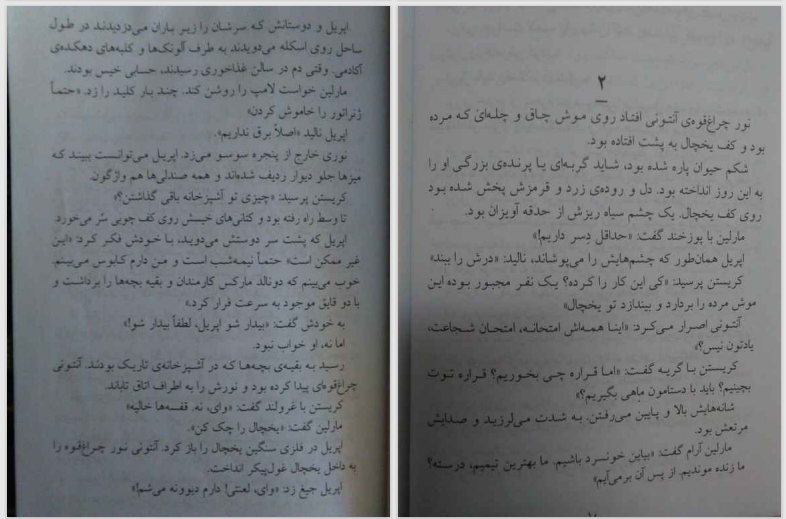 اپریل و دوستانش که سرشان را زیر باران می‌دزدیدند در طول
ساحل روی اسکله می‌دویدند به طرف آلونک‌ها و کلبه‌های دهکده‌ی
آکادمی. وقتی دم در سالن غذاخوری رسیدند، حسابی خیس بودند.
مارلین خواست لامپ را روشن کند. چند بار کلید را زد. «حتماً
ژنراتور را خاموش کردن»
اپریل نالید «اصلاً برق نداریم».
نوری خارج از پنجره سوسو می‌زد. اپریل می‌توانست ببیند که
میزها جلو دیوار ردیف شده‌اند و همه صندلی‌ها هم واژگون.
کریستن پرسید: «چیزی تو آشپزخانه باقی گذاشتن؟»
تا وسط راه رفته بود و کتانی‌های خیسش روی کف چوبی سُر می‌خورد.
اپریل که پشت سر دوستش می‌دوید، با خودش فکر کرد: «این
غیر ممکن است» حتماً نیمه‌شب است و من دارم کابوس می‌بینم.
خوب می‌بینم که دونالد مارکس کارمندان و بقیه بچه‌ها را برداشت و
با دو قایق موجود به سرعت فرار کرد.»
به خودش گفت: «بیدار شو اپریل، لطفاً بیدار شو!»
اما نه. او خواب نبود.
رسید به بقیه‌ی بچه‌ها که در آشپزخانه‌ی تاریک بودند. آنتونی
چراغ‌قوه‌ای پیدا کرده بود و نورش را به اطراف اتاق تاباند.
کریستن با غرولند گفت: «وای، نه. قفسه‌ها خالیه»
مارلین گفت: «یخچال را چک کن».
اپریل در فلزی سنگین یخچال را باز کرد. آنتونی نور چراغ‌قوه را
به داخل یخچال غول‌پیکر انداخت.
اپریل جیغ زد: «وای، لعنتی! دارم دیوونه می‌شم!»
۲
نور چراغ‌قوه‌ی آنتونی افتاد روی موش چاق و چله‌ای که مرده
بود و کف یخچال به پشت افتاده بود.
شکم حیوان پاره شده بود، شاید گربه‌ای یا پرنده‌ی بزرگی او را
به این روز انداخته بود. دل و روده‌ی زرد و قرمزش پخش شده بود
روی کف یخچال. یک چشم سیاه ریزش از حدقه آویزان بود.
مارلین با پوزخند گفت: «حداقل دِسر داریم!»
اپریل همان‌طور که چشم‌هایش را می‌پوشاند، نالید: «درش را ببند»
کریستن پرسید: «کی این کار را کرده؟ یک نفر مجبور بوده این
موش مرده را بردارد و بیندازد تو یخچال»
آنتونی اصرار می‌کرد: «اینا همه‌اش امتحانه، امتحان شجاعت،
یادتون نیس؟»
کریستن با گریه گفت: «اما قراره چی بخوریم؟ قراره توت
بچینیم؟ باید با دستامون ماهی بگیریم؟»
شانه‌هایش بالا و پایین می‌رفتن. به شدت می‌لرزید و صدایش
مرتعش بود.
مارلین آرام گفت: «بیاین خونسرد باشیم. ما بهترین تیمیم، درسته؟
ما زنده موندیم. از پس آن برمی‌آیم»